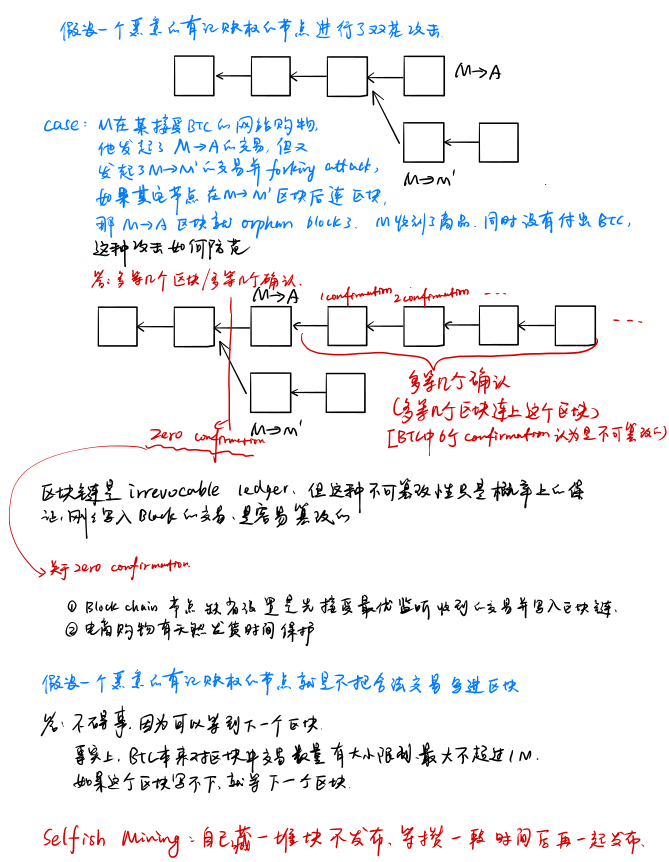 假设一个恶意的有记账权的节点进行了双花攻击
M→A
case: M在某接受BTC的网站购物,
他发起了 M→A的交易, 但又
发起了M→M'的交易并forking attack,
M→M'
如果其它节点 在M→M'区块后连区块,
那 M→A 区块就 orphan block了. M收到了商品. 同时没有付出BTC,
这种攻击如何防范
答: 多等几个区块/多等几个确认.
M→A
1 confirmation 2 confirmation ...
...
多等几个确认
(多等几个区块连上这个区块)
[BTC中6个confirmation认为是不可篡改的]
M→M'
zero confirmation
区块链是 irrevocable ledger. 但这种不可篡改性只是概率上的保
证, 刚刚写入Block的交易, 是容易篡改的
关于zero confirmation.
① Blockchain 节点缺省设置是先接受最优监听收到的交易并写入区块链.
② 电商购物有天然发货时间保护
假设一个恶意的有记账权的节点就是不把合法交易写进区块
答: 不碍事, 因为可以等到下一个区块.
事实上, BTC本来对区块中交易数量有大小限制, 最大不超过1M.
如果这个区块写不下, 就等下一个区块.
Selfish Mining: 自己藏一堆块不发布, 等攒一段时间后再一起发布.